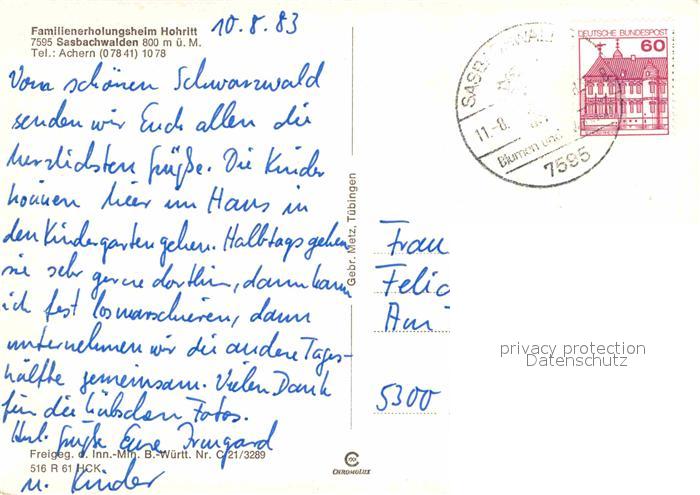 Familienerholungsheim Hohritt
7595 Sasbachwalden 800 m ü. M.
Tel.: Achern (0 78 41) 10 78
10.8.83
Vom schönen Schwarzwald
senden wir Euch allen die
herzlichsten Grüße. Die Kinder
können hier im Haus in
den Kindergarten gehen. Halbtags gehen
sie sehr gerne dorthin, dann kann
ich fest losmarschieren, dann
unternehmen wir die andere Tages-
hälfte gemeinsam. Vielen Dank
für die hübschen Fotos.
Herzl. Grüße Eure Irmgard
u. Kinder
Freigeg. d. Inn.-Min. B.-Württ. Nr. C 21/3289
516 R 61 HCK
Gebr. Metz, Tübingen
CHROMOLUX
DEUTSCHE BUNDESPOST
60
11.-8.
Blumen und
7595
Frau
Felic
5300
privacy protection
Datenschutz